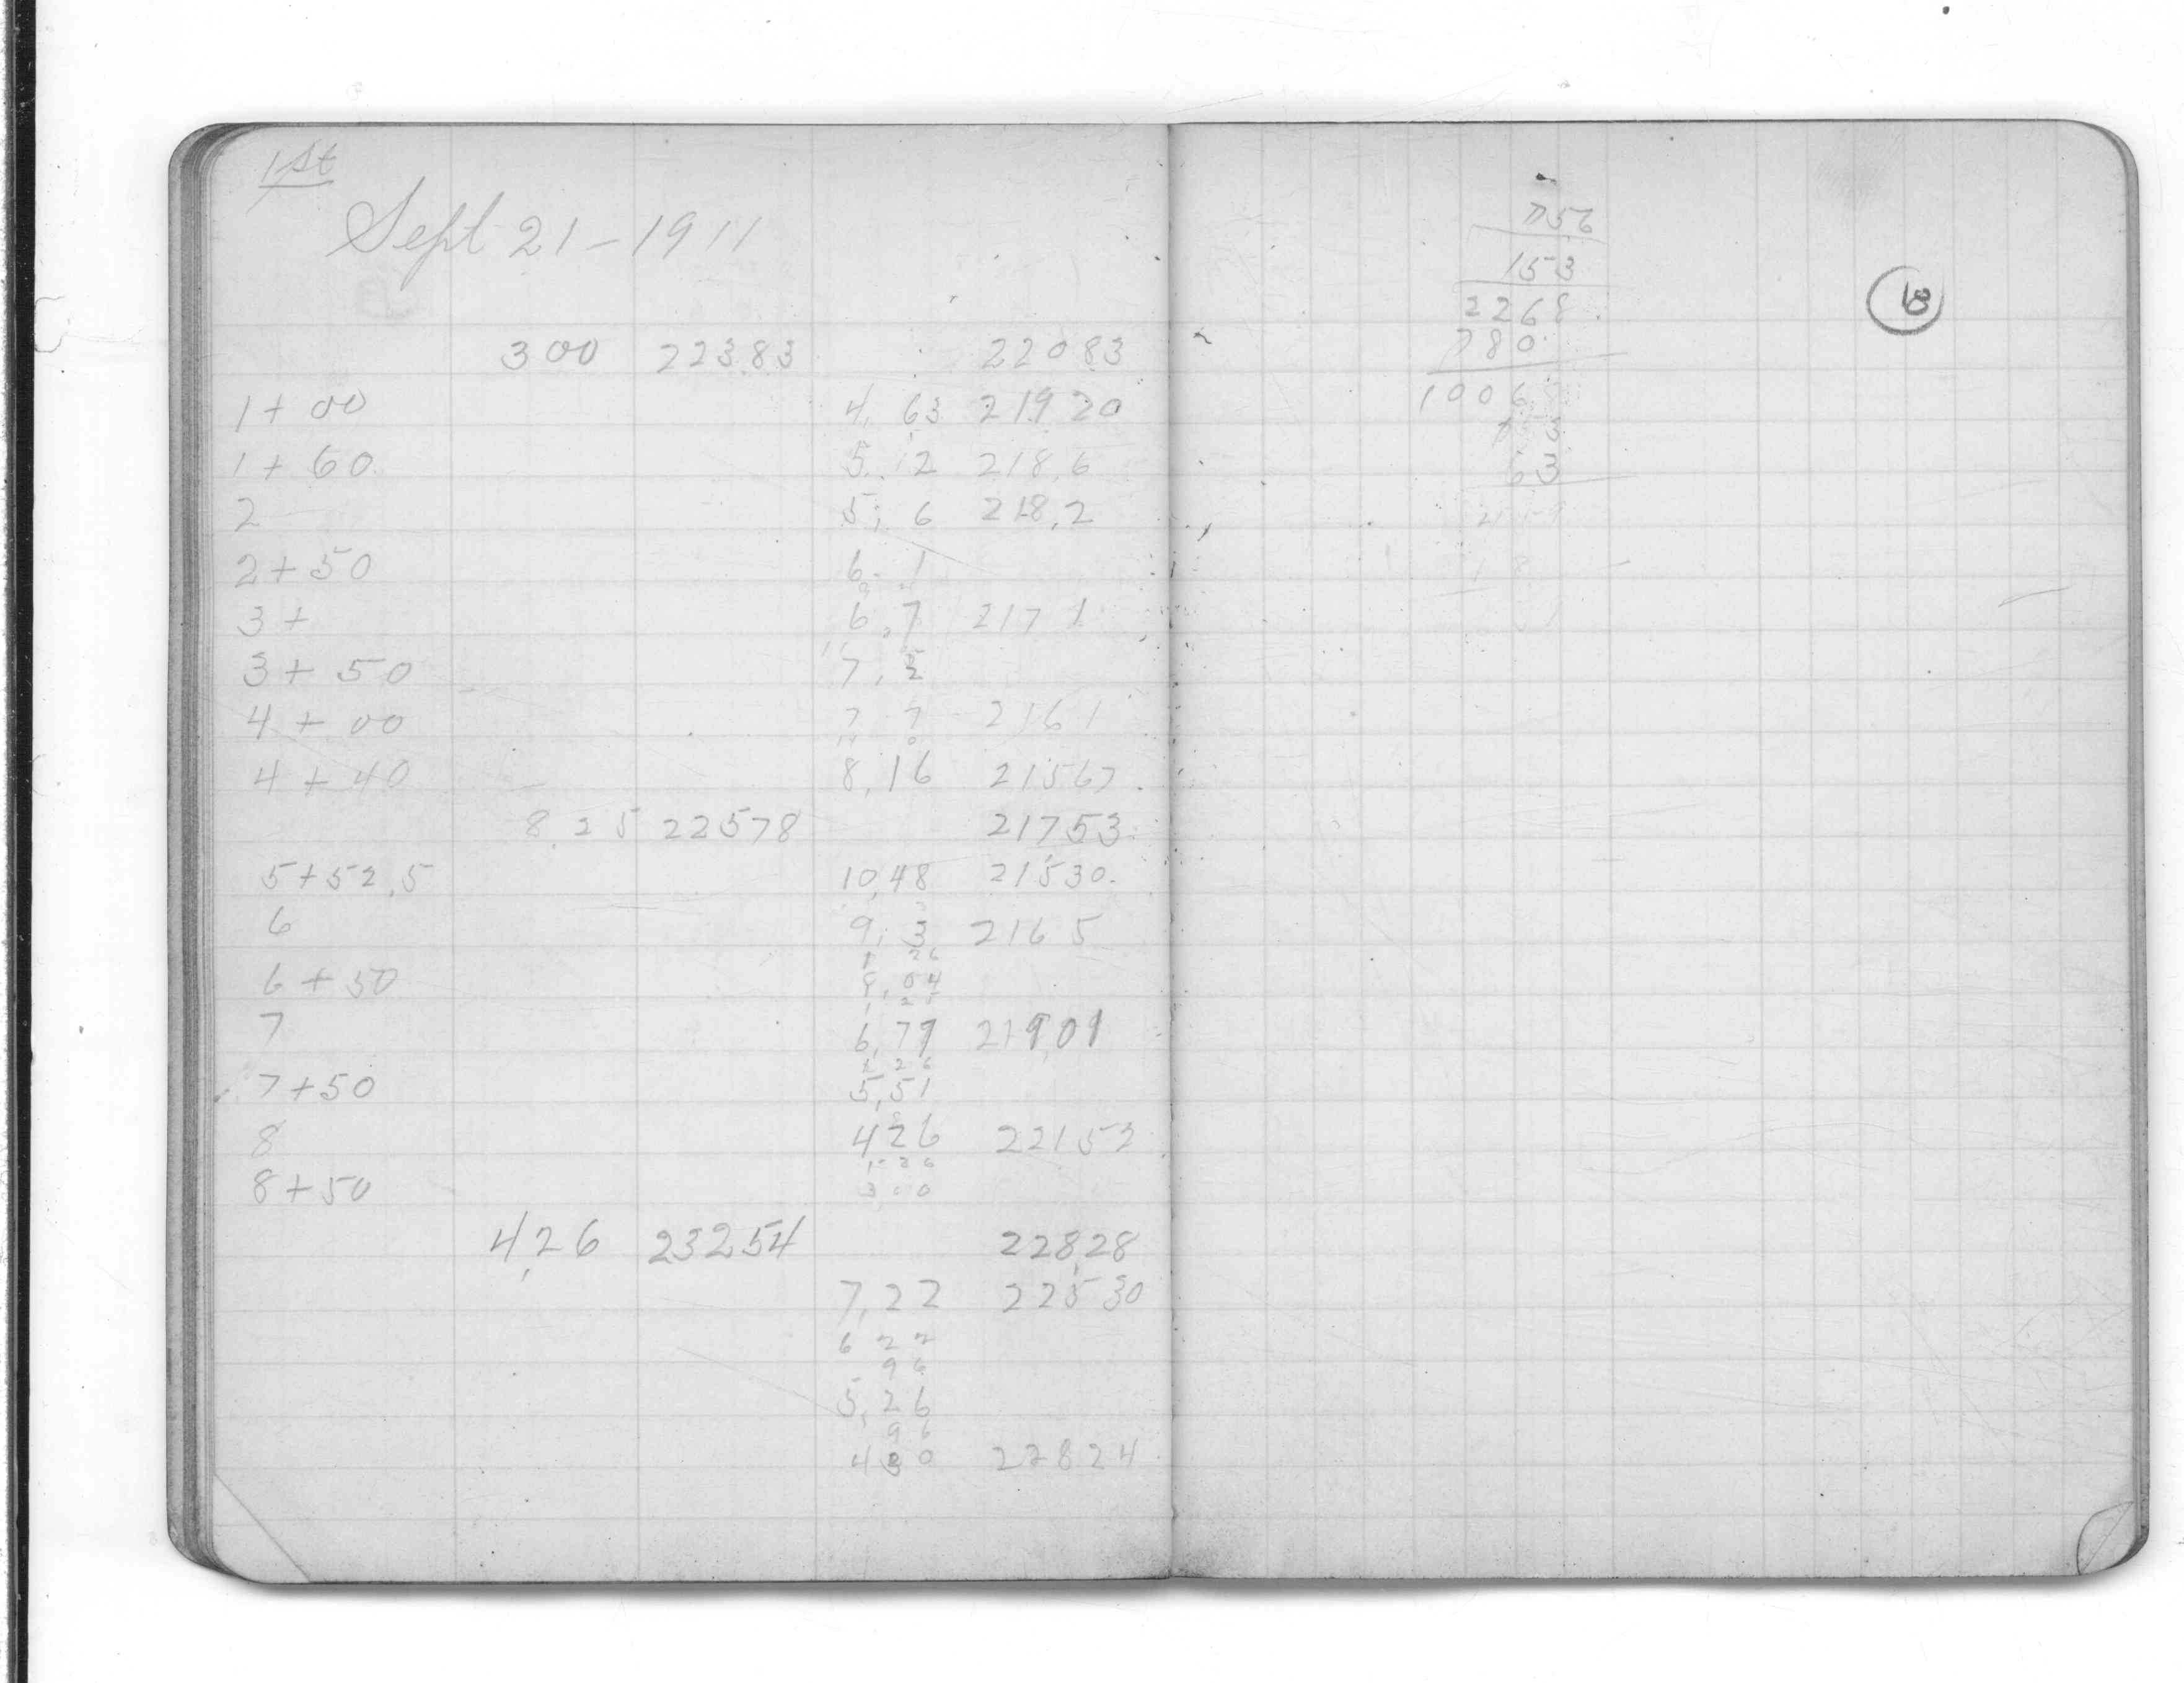 1st
Sept 21 - 1911
300 223.83 220.83
1 + 00 4,63 219.20
1 + 60 5.12 218,6
2 5,6 218,2
2 + 50 6.1
3 + 6,7 217 1
3 + 50 7,2
4 + 00 7 7 216 1
4 + 40 8,16 21567
8.25 22578 21753
5 + 52,5 10,48 21530
6 9,3 216 5
1 26
6 + 50 8,04
1,25
7 6,79 219,01
1 26
7 + 50 5,51
8 426 22153
1 - 26
8 + 50 300
4,26 23254 228,28
7,22 22530
6 22
96
5,26
96
430 22824
756
153
2268
780
1006
63
18